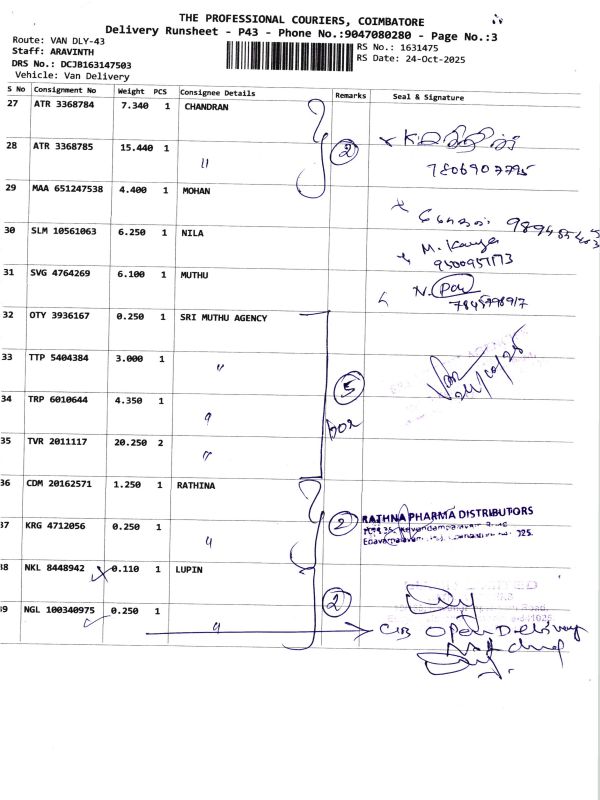 THE PROFESSIONAL COURIERS, COIMBATORE
Delivery Runsheet - P43 - Phone No.:9047080280 - Page No.:3
Route: VAN DLY-43
Staff: ARAVINTH
DRS No.: DCJB163147503
Vehicle: Van Delivery
RS No.: 1631475
RS Date: 24-Oct-2025
S No Consignment No Weight PCS Consignee Details Remarks Seal & Signature
27 ATR 3368784 7.340 1 CHANDRAN
28 ATR 3368785 15.440 1 " 2
7806907795
29 MAA 651247538 4.400 1 MOHAN
30 SLM 10561063 6.250 1 NILA M. Kavya
9500951173
31 SVG 4764269 6.100 1 MUTHU N.
7845798917
32 OTY 3936167 0.250 1 SRI MUTHU AGENCY
33 TTP 5404384 3.000 1 " 5
24/10/25
34 TRP 6010644 4.350 1 " box
35 TVR 2011117 20.250 2 "
36 CDM 20162571 1.250 1 RATHINA
2 RATHNA PHARMA DISTRIBUTORS
37 KRG 4712056 0.250 1 "
38 NKL 8448942 0.110 1 LUPIN
2
39 NGL 100340975 0.250 1 " Open Delivery